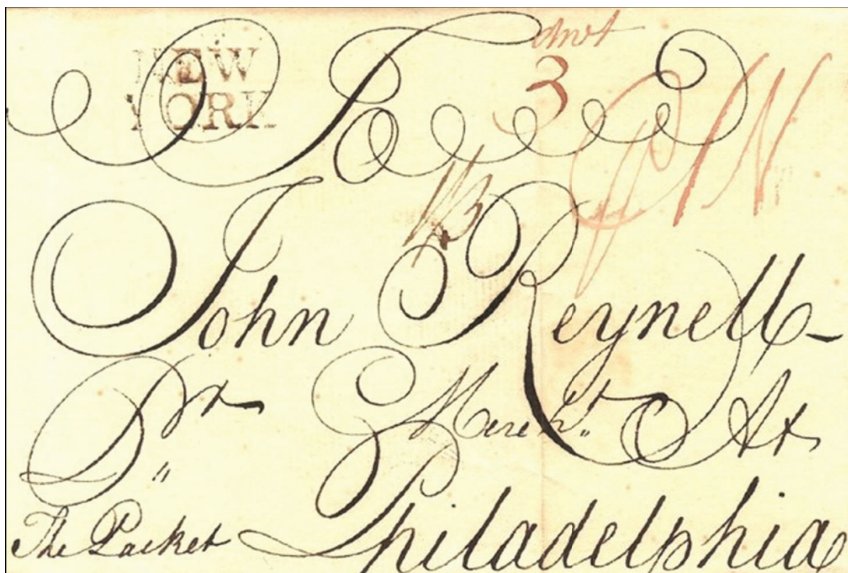 NEW
YORK
To
dwt
3
John Reynell
Pr Merch.t At
The Packet Philadelphia